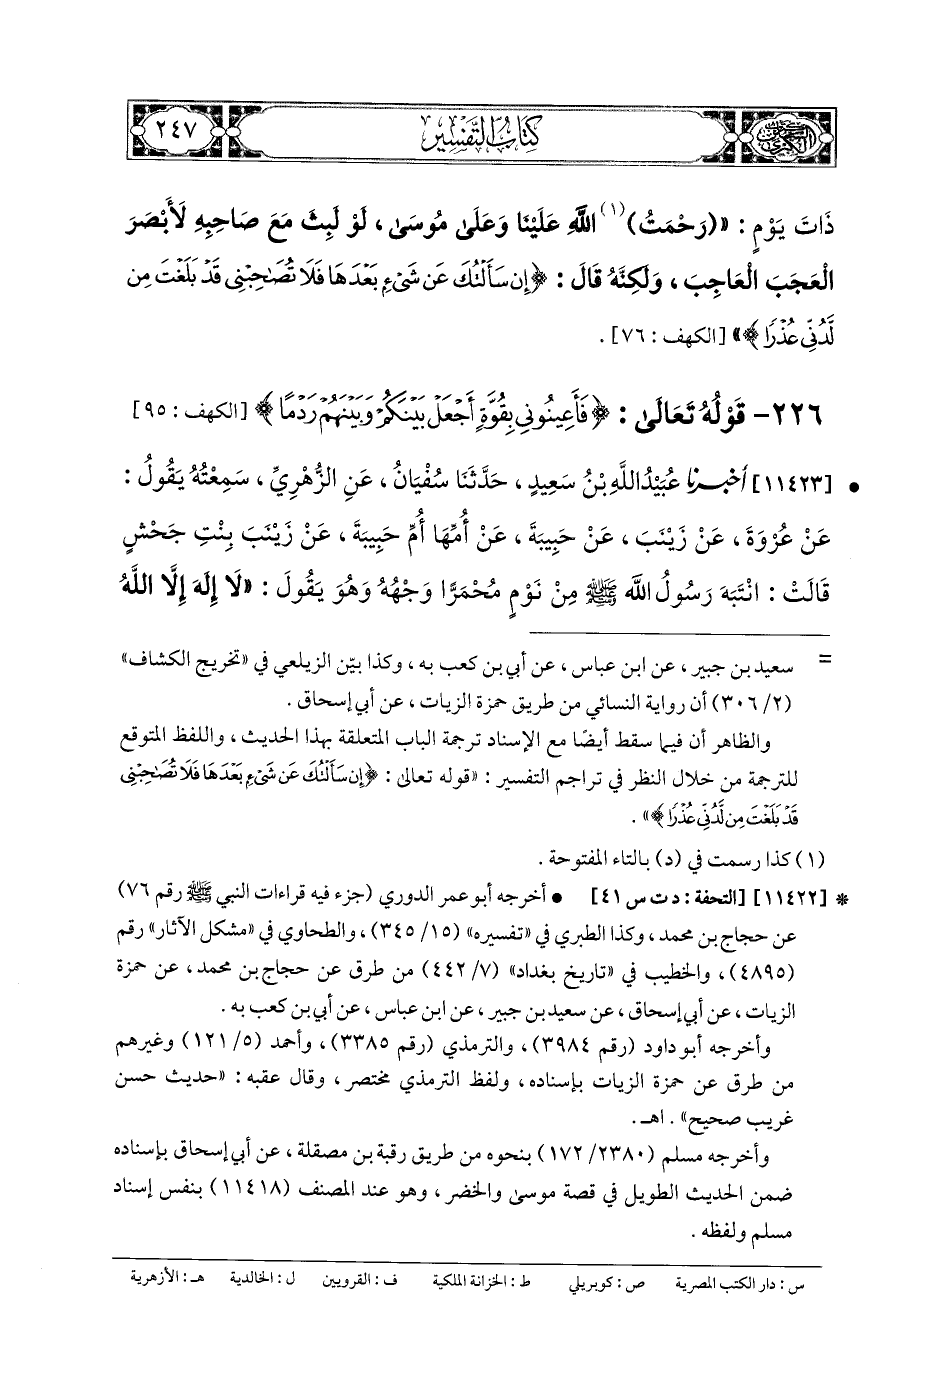 السنن الكبرى كتاب التفسير ٢٤٧
ذَاتَ يَوْمٍ : «(رَحْمَتُ)(١) اللَّهِ عَلَيْنَا وَعَلَىٰ مُوسَىٰ ، لَوْ لَبِثَ مَعَ صَاحِبِهِ لَأَبْصَرَ
الْعَجَبَ الْعَاجِبَ ، وَلَكِنَّهُ قَالَ : ﴿إِن سَأَلْتُكَ عَن شَىْءٍ بَعْدَهَا فَلَا تُصَـٰحِبْنِى قَدْ بَلَغْتَ مِن
لَّدُنِّى عُذْرًا﴾» [الكهف : ٧٦] .
٢٢٦- قَوْلُهُ تَعَالَىٰ : ﴿فَأَعِينُونِى بِقُوَّةٍ أَجْعَلْ بَيْنَكُمْ وَبَيْنَهُمْ رَدْمًا﴾ [الكهف : ٩٥]
• [١١٤٢٣] أخبرنا عُبَيْدُ اللَّهِ بْنُ سَعِيدٍ ، حَدَّثَنَا سُفْيَانُ ، عَنِ الزُّهْرِيِّ ، سَمِعْتُهُ يَقُولُ :
عَنْ عُرْوَةَ ، عَنْ زَيْنَبَ ، عَنْ حَبِيبَةَ ، عَنْ أُمِّهَا أُمِّ حَبِيبَةَ ، عَنْ زَيْنَبَ بِنْتِ جَحْشٍ
قَالَتْ : انْتَبَهَ رَسُولُ اللَّهِ ﷺ مِنْ نَوْمٍ مُحْمَرًّا وَجْهُهُ وَهُوَ يَقُولُ : «لَا إِلَهَ إِلَّا اللَّهُ
= سعيد بن جبير ، عن ابن عباس ، عن أبي بن كعب به ، وكذا بيّن الزيلعي في «تخريج الكشاف»
(٢/ ٣٠٦) أن رواية النسائي من طريق حمزة الزيات ، عن أبي إسحاق .
والظاهر أن فيما سقط أيضًا مع الإسناد ترجمة الباب المتعلقة بهذا الحديث ، واللفظ المتوقع
للترجمة من خلال النظر في تراجم التفسير : «قوله تعالى : ﴿إِن سَأَلْتُكَ عَن شَىْءٍ بَعْدَهَا فَلَا تُصَـٰحِبْنِى
قَدْ بَلَغْتَ مِن لَّدُنِّى عُذْرًا﴾» .
(١) كذا رسمت في (د) بالتاء المفتوحة .
* [١١٤٢٢] [التحفة : د ت س ٤١] • أخرجه أبو عمر الدوري (جزء فيه قراءات النبي ﷺ رقم ٧٦)
عن حجاج بن محمد ، وكذا الطبري في «تفسيره» (١٥/ ٣٤٥) ، والطحاوي في «مشكل الآثار» رقم
(٤٨٩٥) ، والخطيب في «تاريخ بغداد» (٧/ ٤٤٢) من طرق عن حجاج بن محمد ، عن حمزة
الزيات ، عن أبي إسحاق ، عن سعيد بن جبير ، عن ابن عباس ، عن أبي بن كعب به .
وأخرجه أبو داود (رقم ٣٩٨٤) ، والترمذي (رقم ٣٣٨٥) ، وأحمد (٥/ ١٢١) وغيرهم
من طرق عن حمزة الزيات بإسناده ، ولفظ الترمذي مختصر ، وقال عقبه : «حديث حسن
غريب صحيح» . اهـ.
وأخرجه مسلم (٢٣٨٠/ ١٧٢) بنحوه من طريق رقبة بن مصقلة ، عن أبي إسحاق بإسناده
ضمن الحديث الطويل في قصة موسى والخضر ، وهو عند المصنف (١١٤١٨) بنفس إسناد
مسلم ولفظه .
س : دار الكتب المصرية ص : كوبريلي ط : الخزانة الملكية ف : القرويين ل : الخالدية هـ : الأزهرية